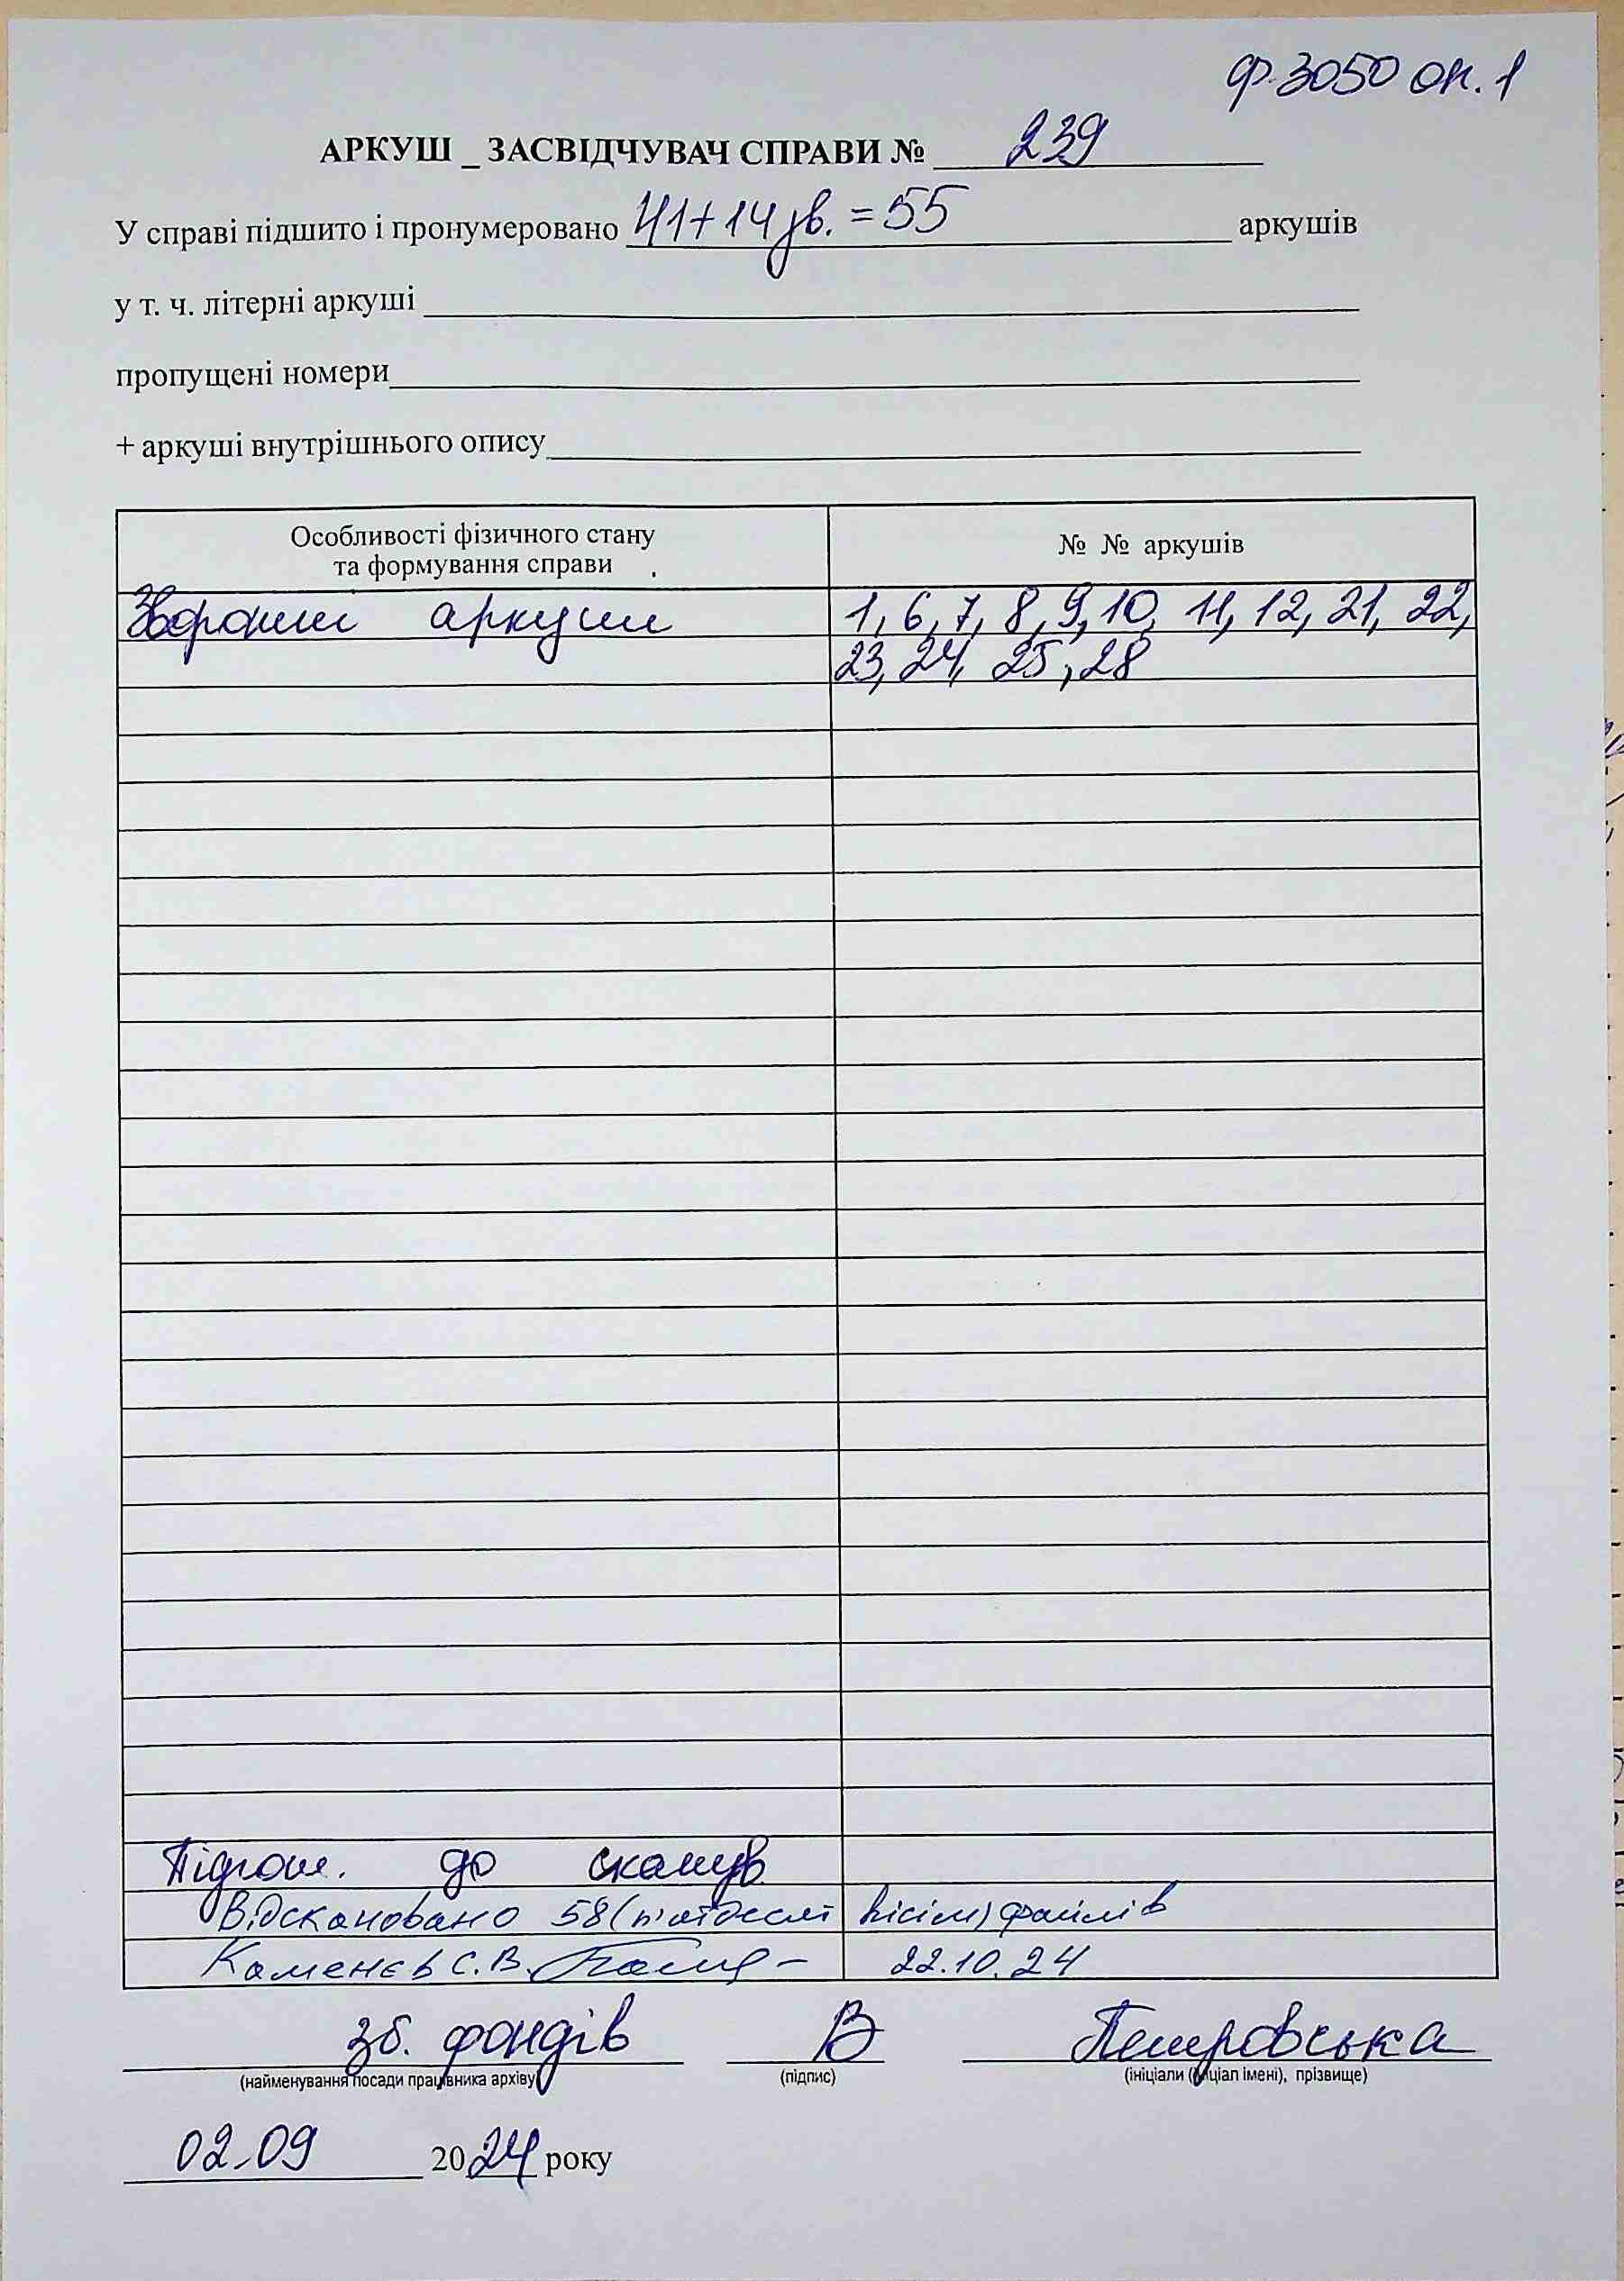 ф.3050 оп.1
АРКУШ _ ЗАСВІДЧУВАЧ СПРАВИ № 239
У справі підшито і пронумеровано 41+14 зв. = 55 аркушів
у т. ч. літерні аркуші
пропущені номери
+ аркуші внутрішнього опису
Особливості фізичного стану
та формування справи
№ № аркушів
Зворотні аркуши 1, 6, 7, 8, 9, 10, 11, 12, 21, 22,
23, 24, 25, 28
Підгот. до сканув
Відскановано 58 (п'ятдесят вісім) файлів
Каменєв С.В. 22.10.24
зб. фондів В Петровська
(найменування посади працівника архіву) (підпис) (ініціали (ініціал імені), прізвище)
02.09 2024 року